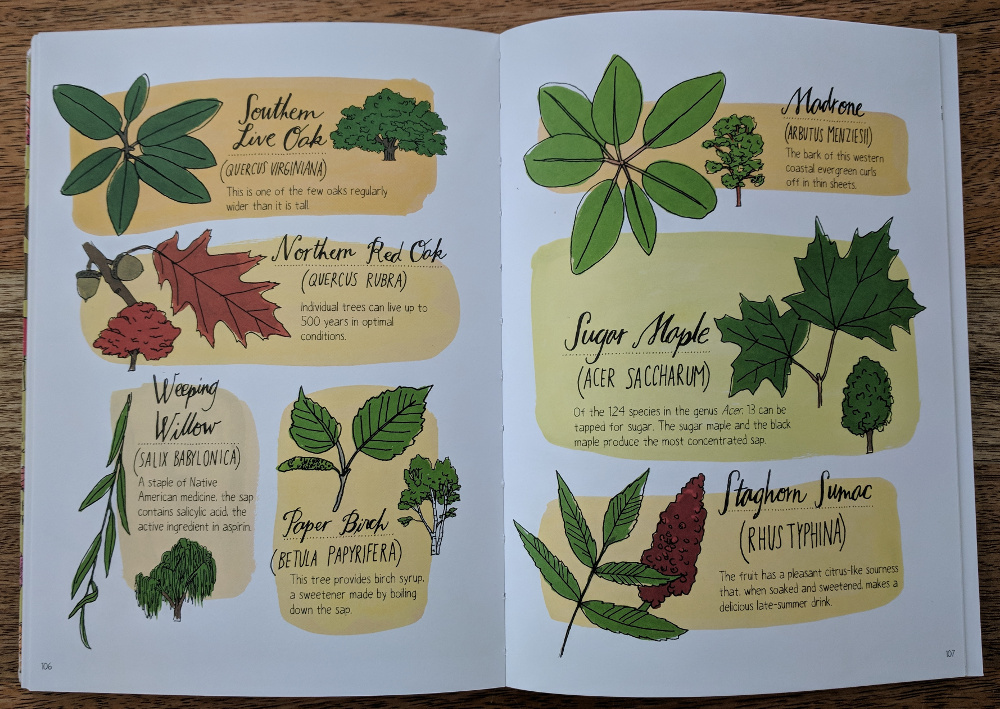 Southern
Live Oak
(QUERCUS VIRGINIANA)
This is one of the few oaks regularly
wider than it is tall.
Northern Red Oak
(QUERCUS RUBRA)
Individual trees can live up to
500 years in optimal
conditions.
Weeping
Willow
(SALIX BABYLONICA)
A staple of Native
American medicine, the sap
contains salicylic acid, the
active ingredient in aspirin.
Paper Birch
(BETULA PAPYRIFERA)
This tree provides birch syrup,
a sweetener made by boiling
down the sap.
106
Madrone
(ARBUTUS MENZIESII)
The bark of this western
coastal evergreen curls
off in thin sheets.
Sugar Maple
(ACER SACCHARUM)
Of the 124 species in the genus Acer, 13 can be
tapped for sugar. The sugar maple and the black
maple produce the most concentrated sap.
Staghorn Sumac
(RHUS TYPHINA)
The fruit has a pleasant citrus-like sourness
that, when soaked and sweetened, makes a
delicious late-summer drink.
107